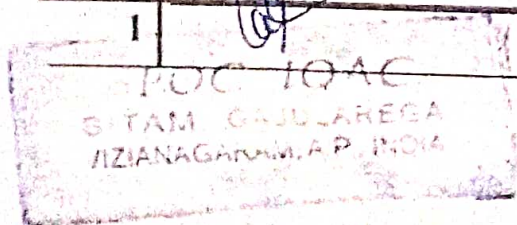 1
IQAC
SITAM GAJULAREGA
VIZIANAGARAM, A.P. INDIA